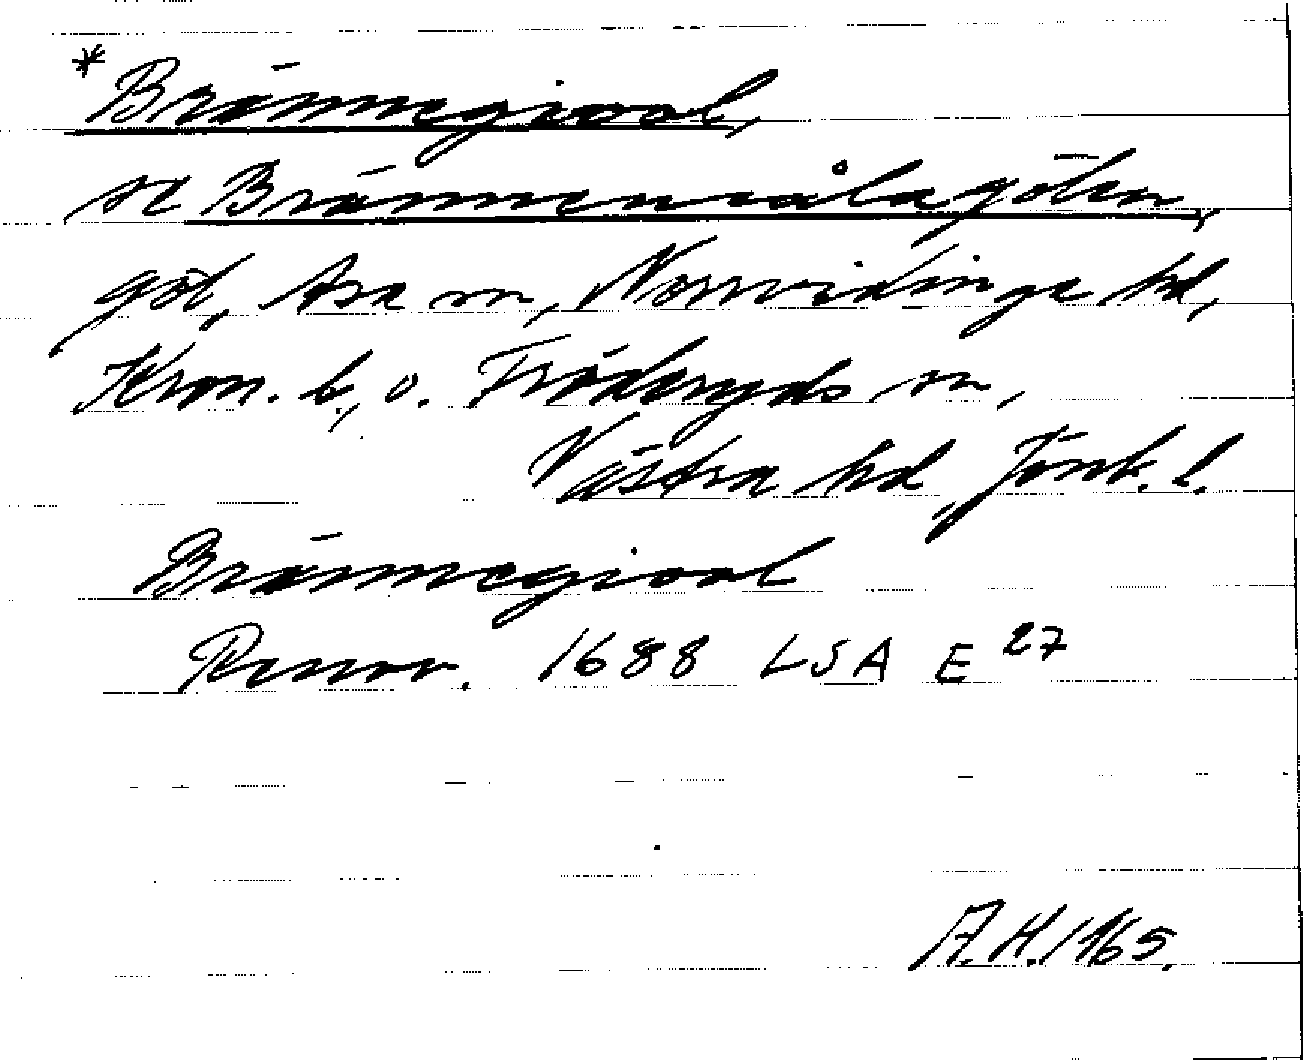 *Brännegiool,
se Brännemålagölen,
göl, Asa sn, Norrvidinge hd,
Kron. l, o. Fröderyds sn,
Västra hd, Jönk. l.
Brännegiool
Renov. 1688 LSA E 27
A.H. 1965.